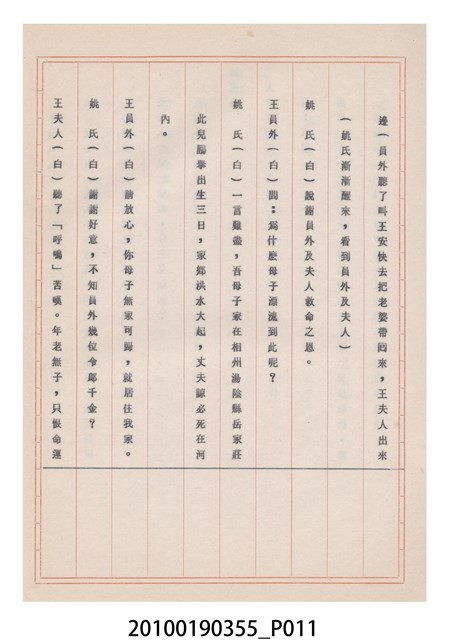 邊(員外聽了叫王安快去把老婆帶回來，王夫人出來
(姚氏漸漸醒來，看到員外及夫人)
姚　氏(白)說謝員外及夫人救命之恩。
王員外(白)問：為什麼母子漂流到此呢？
姚　氏(白)一言難盡，吾母子家在相州湯陰縣岳家莊
此兒鵬舉出生三日，家鄉洪水大起，丈夫諒必死在河
內。
王員外(白)請放心，你母子無家可歸，就居住我家。
姚　氏(白)謝謝好意，不知員外幾位令郎千金？
王夫人(白)聽了「呼鳴」苦嘆。年老無子，只恨命運
20100190355_P011